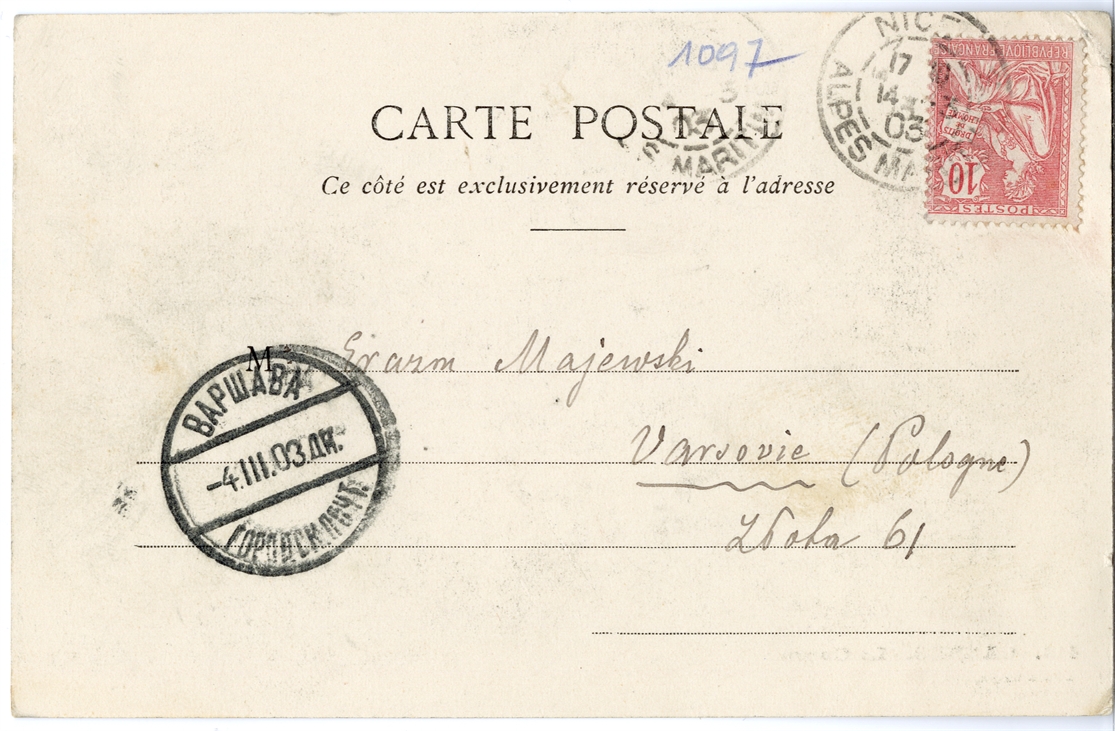 1097
CARTE POSTALE
Ce côté est exclusivement réservé à l'adresse
NICE
17
14
03
ALPES MA
3
03
S MARITIM
REPUBLIQUE FRANCAISE
DROITS DE L'HOMME
10
POSTES
M
Erazm Majewski
Varsovie (Pologne)
Złota 61
ВАРШАВА
-4.III.03.ДН.
ГОРОДСК.ПОЧТ.